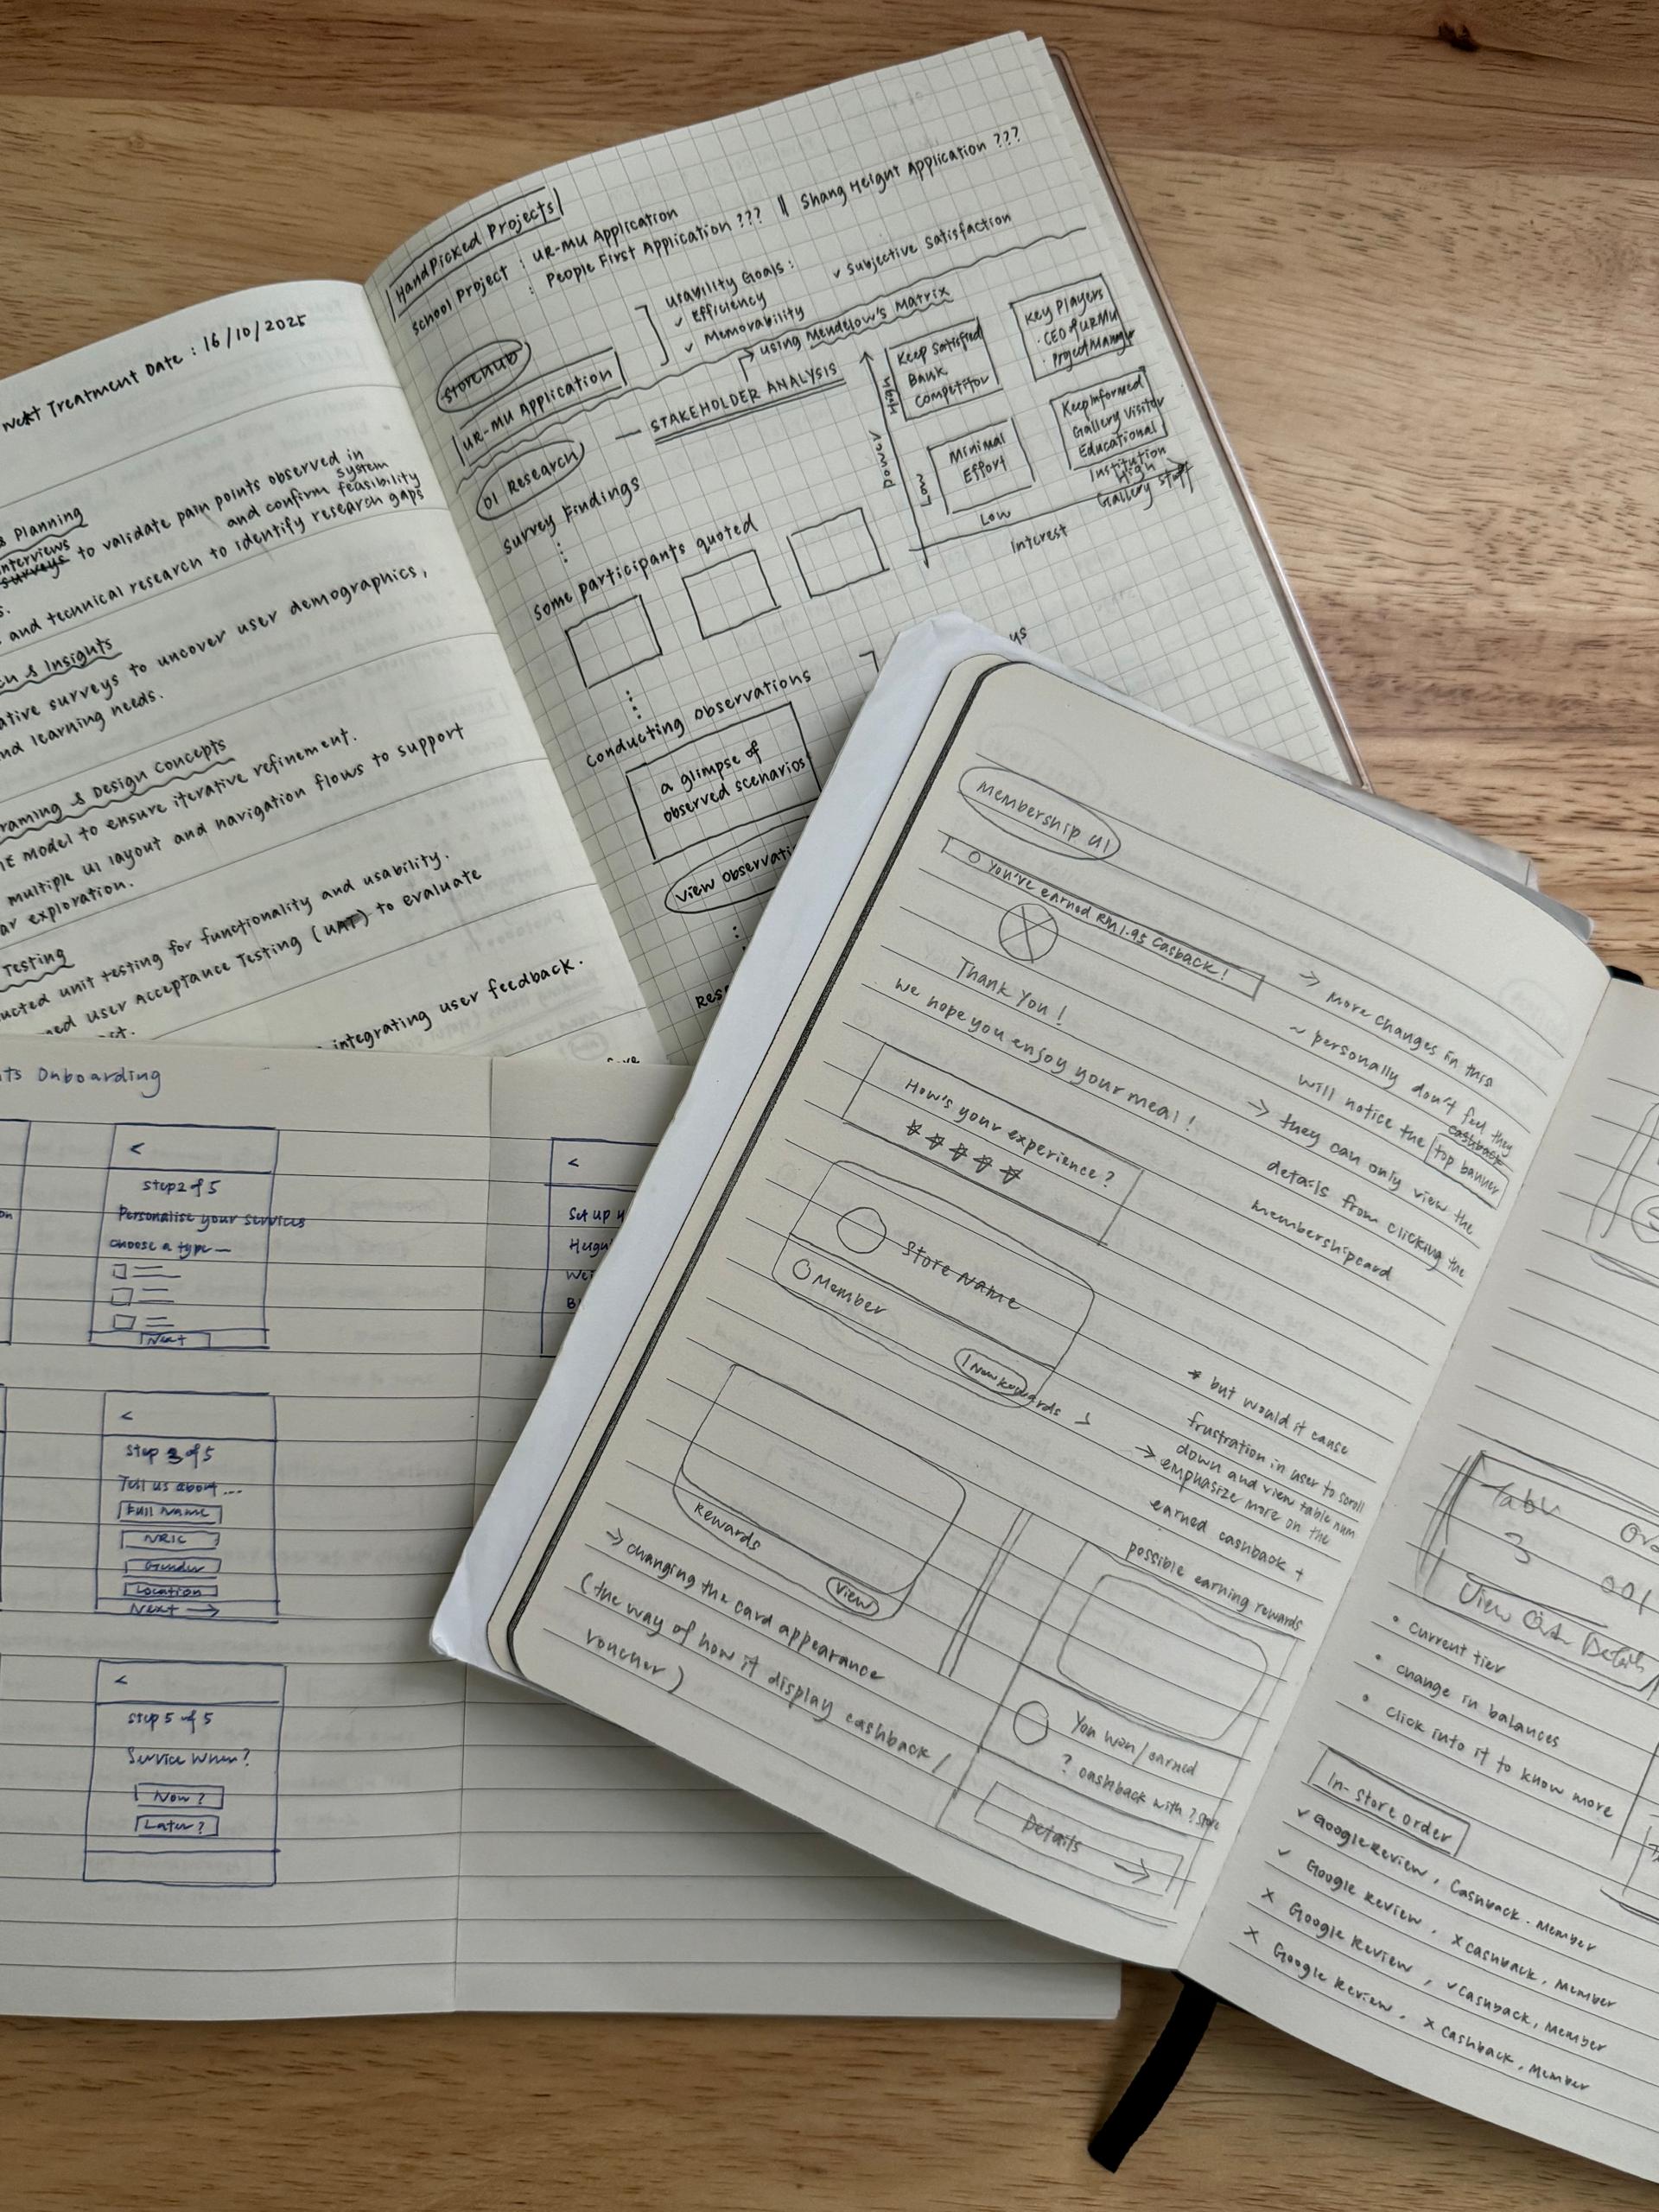 Next Treatment Date : 16/10/2025
& Planning
interviews
surveys to validate pain points observed in
system
and confirm feasibility
s.
and technical research to identify research gaps
& Insights
ative surveys to uncover user demographics,
nd learning needs.
raming & Design Concepts
IE model to ensure iterative refinement.
multiple UI layout and navigation flows to support
ar exploration.
Testing
ucted unit testing for functionality and usability.
ned User Acceptance Testing (UAT) to evaluate
integrating user feedback.
HandPicked Projects
School Project : UR-MU Application
: People First Application ??? || Shang Height Application ???
StoreHub
UR-MU Application
Usability Goals :
✓ Efficiency
✓ Memorability
✓ Subjective Satisfaction
01 Research
— STAKEHOLDER ANALYSIS
→ using Mendelow's Matrix
Power
High
Low
Keep Satisfied
Bank
Competitor
Key Players
· CEO of URMU
· Project Manager
Minimal
Effort
Keep Informed
Gallery Visitor
Educational
Institution
Gallery Staff
Low
High
Interest
Survey Findings
Some participants quoted
Conducting observations
a glimpse of
observed scenarios
View Observati
Res
ys
ts Onboarding
<
Step 2 of 5
Personalise your services
Choose a type —
Next
<
Step 3 of 5
Tell us about ...
Full Name
NRIC
Gender
Location
Next →
<
Step 5 of 5
Service When?
Now ?
Later ?
<
Set up
Heigh
Wei
Bl
Membership UI
You've earned RM1.95 Cashback!
Thank You !
We hope you enjoy your meal !
How's your experience ?
Store Name
Member
1 New Rewards >
Rewards
View
→ changing the card appearance
(the way of how it display cashback /
voucher )
→ More changes in this
~ personally don't feel they
will notice the cashback
top banner
→ they can only view the
details from clicking the
membershipcard
* but would it cause
frustration in user to scroll
down and view table num
→ emphasize more on the
earned cashback +
possible earning rewards
You won/earned
? cashback with ? store
Details →
Table
3
001
View Order Details
• current tier
• change in balances
• click into it to know more
In-store order
✓ Google Review , Cashback . Member
✓ Google Review , x Cashback , Member
x Google Review , ✓ Cashback , Member
x Google Review , x Cashback , Member